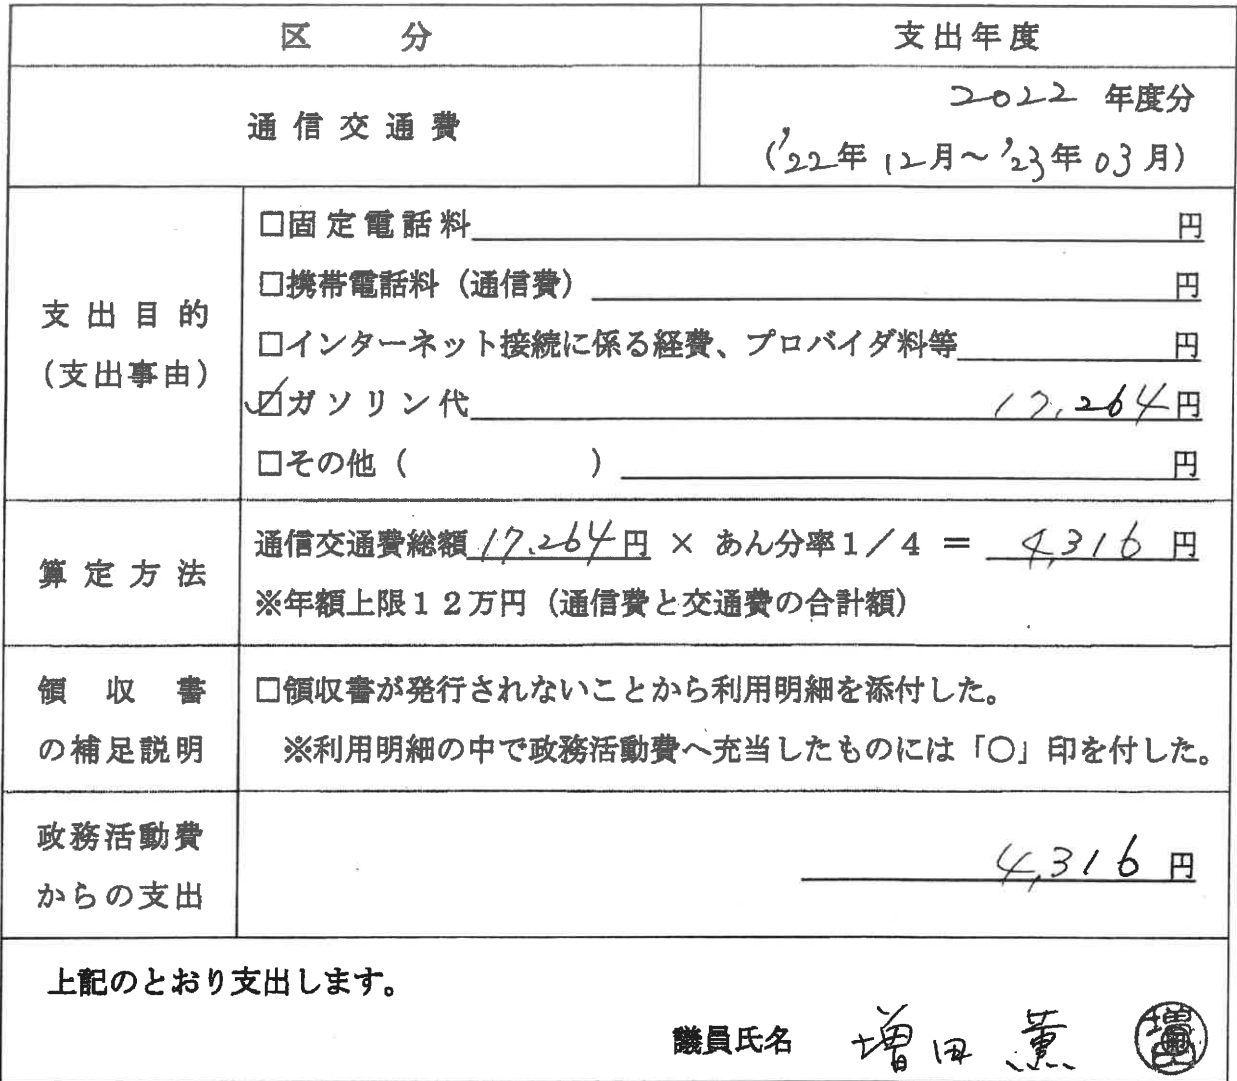 区 分 支出年度
通信交通費
2022 年度分
('22年 12月～'23年 03月)
支出目的
(支出事由)
□固定電話料 円
□携帯電話料（通信費） 円
□インターネット接続に係る経費、プロバイダ料等 円
☑ガソリン代 17,264円
□その他（ ） 円
算定方法
通信交通費総額 17,264円 × あん分率1／4 ＝ 4,316 円
※年額上限１２万円（通信費と交通費の合計額）
領収書
の補足説明
□領収書が発行されないことから利用明細を添付した。
※利用明細の中で政務活動費へ充当したものには「○」印を付した。
政務活動費
からの支出
4,316 円
上記のとおり支出します。
議員氏名 増田 薫